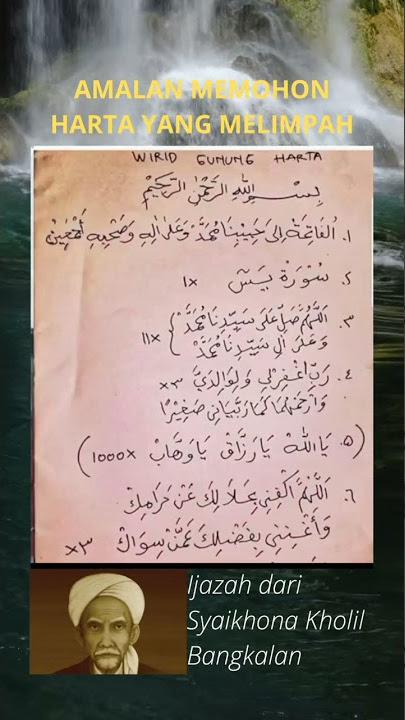 AMALAN MEMOHON
HARTA YANG MELIMPAH
WIRID GUNUNG HARTA
بِسْمِ اللهِ الرَّحْمٰنِ الرَّحِيْمِ
١. الْفَاتِحَة إِلَى حَبِيْبِنَا مُحَمَّدْ وَعَلَى اٰلِهِ وَصَحْبِهِ أَجْمَعِيْنَ
٢. سُوْرَةْ يٰسٓ ١x
٣. اَللّٰهُمَّ صَلِّ عَلَى سَيِّدِنَا مُحَمَّدْ
وَعَلَى اٰلِ سَيِّدِنَا مُحَمَّدْ } ١١x
٤. رَبِّ اغْفِرْلِي وَلِوَالِدَيَّ ٣x
وَارْحَمْهُمَا كَمَا رَبَّيَانِي صَغِيْرًا
(٥. يَا اَللهْ يَا رَزَّاقْ يَا وَهَّابْ 1000x)
٦. اَللّٰهُمَّ اكْفِنِي بِحَلَالِكَ عَنْ حَرَامِكْ
وَأَغْنِنِي بِفَضْلِكَ عَمَّنْ سِوَاكْ ٣x
Ijazah dari
Syaikhona Kholil
Bangkalan